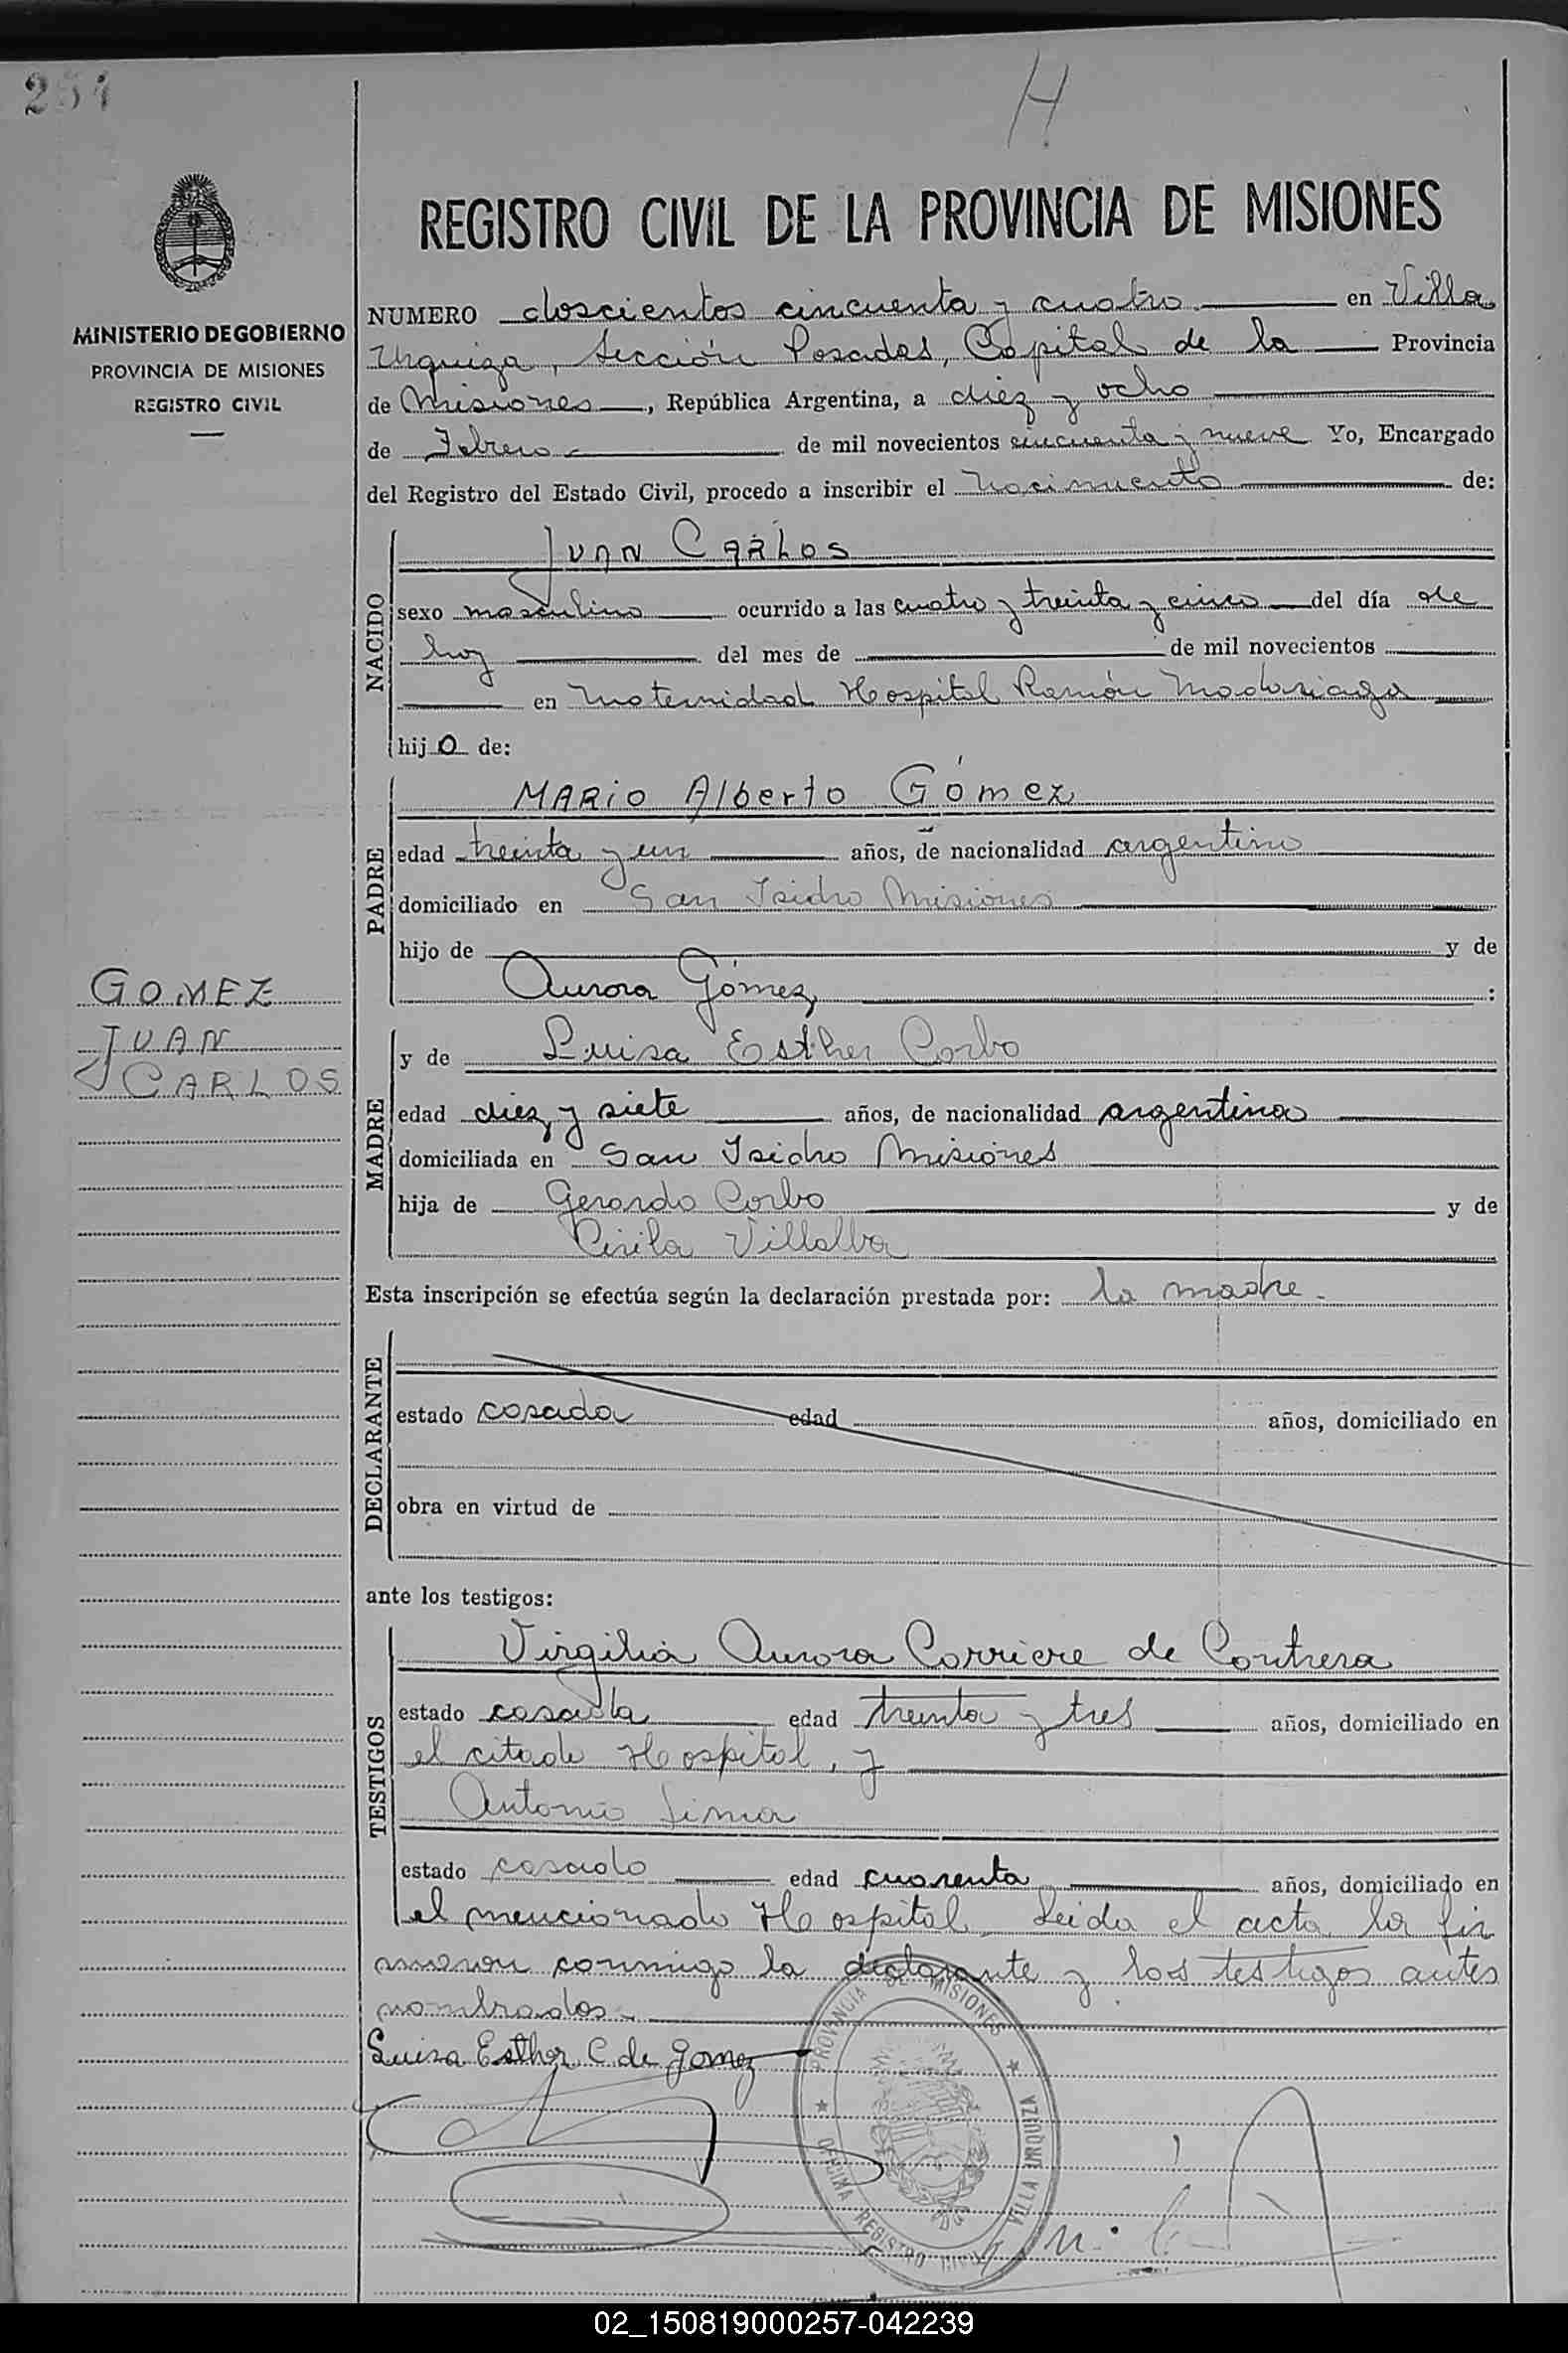 254
H
MINISTERIO DE GOBIERNO
PROVINCIA DE MISIONES
REGISTRO CIVIL
REGISTRO CIVIL DE LA PROVINCIA DE MISIONES
NUMERO doscientos cincuenta y cuatro en Villa
Urquiza, Sección Posadas, Capital de la Provincia
de Misiones, República Argentina, a diez y ocho
de Febrero de mil novecientos cincuenta y nueve Yo, Encargado
del Registro del Estado Civil, procedo a inscribir el Nacimiento de:
NACIDO
JUAN CARLOS
sexo masculino ocurrido a las cuatro y treinta y cinco del día de
hoy del mes de de mil novecientos
en Maternidad Hospital Ramón Madariaga
hijo de:
PADRE
MARIO Alberto Gómez
edad treinta y un años, de nacionalidad argentino
domiciliado en San Isidro Misiones
hijo de y de
Aurora Gómez :
GOMEZ
JUAN
CARLOS
MADRE
y de Luisa Esther Corbo
edad diez y siete años, de nacionalidad argentina
domiciliada en San Isidro Misiones
hija de Gerardo Corbo y de
Cirila Villalba
Esta inscripción se efectúa según la declaración prestada por: la madre.
DECLARANTE
estado casada edad años, domiciliado en
obra en virtud de
ante los testigos:
TESTIGOS
Virgilia Aurora Corriere de Contrera
estado casada edad treinta y tres años, domiciliado en
el citado Hospital, y
Antonio Lima
estado casado edad cuarenta años, domiciliado en
el mencionado Hospital. Leida el acta, la fir
maron conmigo la declarante y los testigos antes
nombrados.
Luisa Esther C. de Gomez
PROVINCIA DE MISIONES
OFICINA REGISTRO CIVIL VILLA URQUIZA
02_150819000257-042239